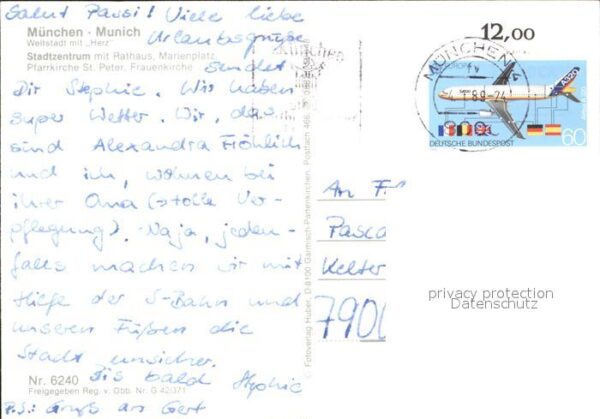 Salut Passi! Viele liebe
Urlaubsgrüße
sendet
Dir Stephie. Wir haben
super Wetter. Wir, das
sind Alexandra Fröhlich
und ich, wohnen bei
ihrer Oma (→ tolle Ver-
pflegung). Naja, jeden-
falls machen wir mit
Hilfe der S-Bahn und
unseren Füßen die
Stadt unsicher.
Bis bald Stephie
P.S.: Gruß an Gert
München · Munich
Weltstadt mit „Herz“
Stadtzentrum mit Rathaus, Marienplatz,
Pfarrkirche St. Peter, Frauenkirche
Nr. 6240
Freigegeben Reg. v. Obb. Nr. G 42/371
© Fotoverlag Huber, D-8100 Garmisch-Partenkirchen, Postfach 466,
München
12,00
MÜNCHEN
EUROPA
A320
60
DEUTSCHE BUNDESPOST
An
Pasca
Kelter
7900
privacy protection
Datenschutz